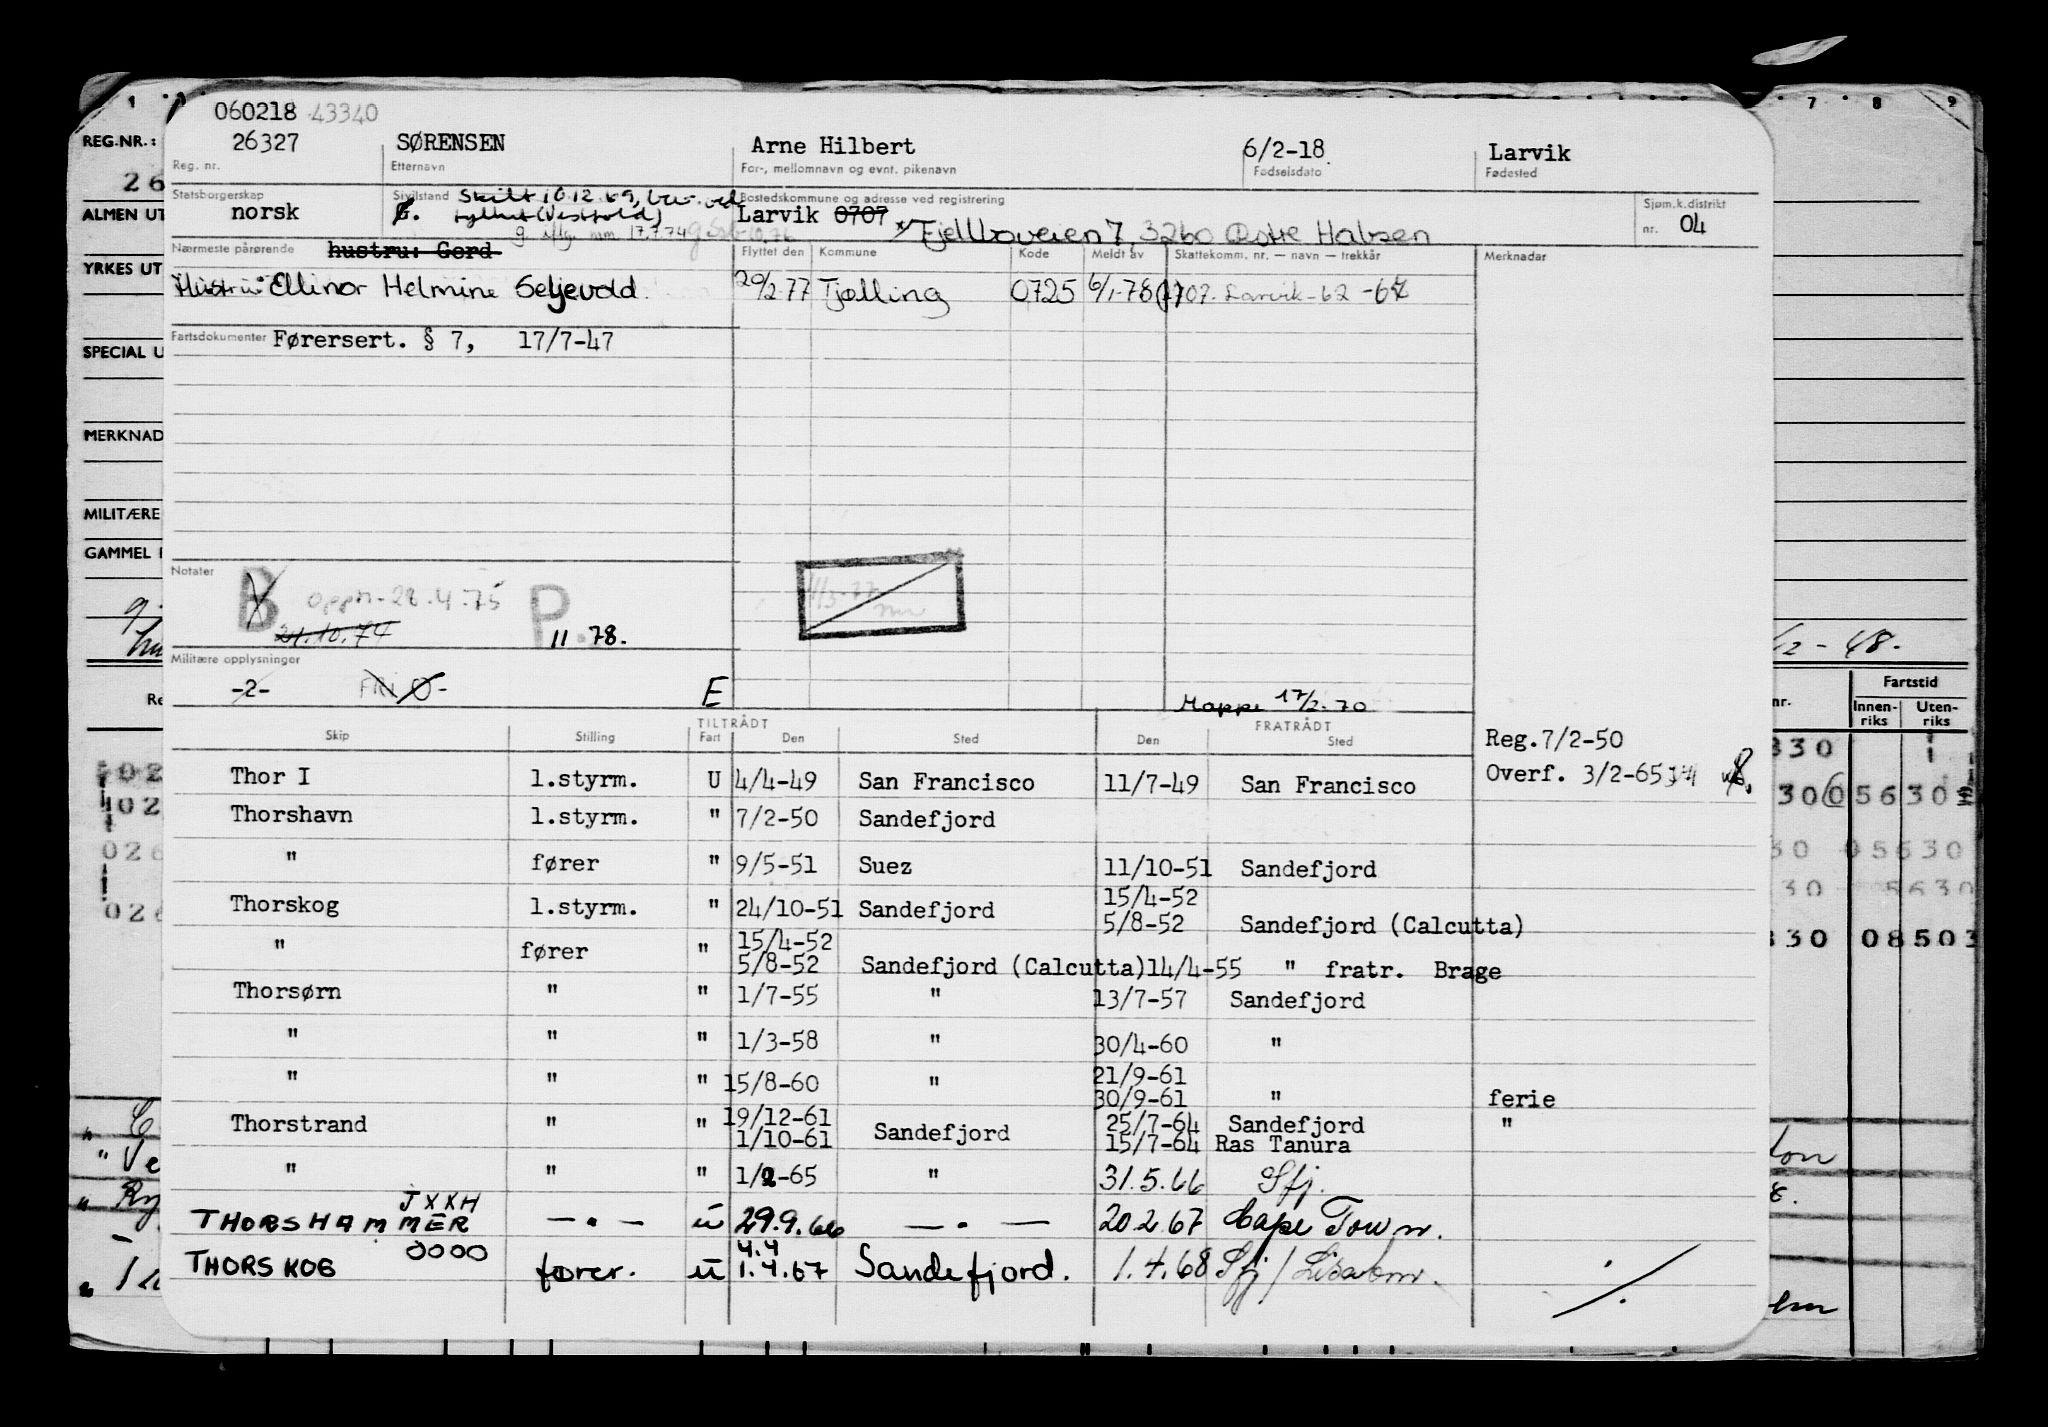 1 7 8 9
060218 43340
REG.NR.: 26327 SØRENSEN Arne Hilbert 6/2-18 Larvik
Reg. nr. Etternavn For-, mellomnavn og evnt. pikenavn Fødselsdato Fødested
26
Statsborgerskap Sivilstand Skilt 10.12.69, bev. ved Bostedskommune og adresse ved registrering Sjøm.k.distrikt
ALMEN UT norsk G. fylket (Vestfold) Larvik 0707 Fjellboveien 7, 3260 Østre Halsen nr. 04
g iflg. mm 17.7.74
Nærmeste pårørende hustru: Gerd Flyttet den Kommune Kode Meldt av Skattekomm. nr. — navn — trekkår Merknader
YRKES UT Hustru: Ellinor Helmine Seljevold 20/2-77 Tjølling 0725 6/1-78 0707 Larvik-62
Fartsdokumenter Førersert. § 7, 17/7-47
SPECIAL U
MERKNAD
MILITÆRE
GAMMEL
Notater B oppn-28.4.75 P
21.10.74 11.78.
-48.
Militære opplysninger
-2- FRI E
Mappe 17/2-70
TILTRÅDT FRATRÅDT
Skip Stilling Fart Den Sted Den Sted Fartstid
nr. Innen-riks Uten-riks
Reg.7/2-50
Overf. 3/2-65
Thor I 1.styrm. U 4/4-49 San Francisco 11/7-49 San Francisco
Thorshavn 1.styrm. " 7/2-50 Sandefjord
" fører " 9/5-51 Suez 11/10-51 Sandefjord
Thorskog 1.styrm. " 24/10-51 Sandefjord 15/4-52
5/8-52 Sandefjord (Calcutta)
" fører " 15/4-52
5/8-52 Sandefjord (Calcutta) 14/4-55 " fratr. Brage
Thorsørn " " 1/7-55 " 13/7-57 Sandefjord
" " " 1/3-58 " 30/4-60 "
" " " 15/8-60 " 21/9-61
30/9-61 " ferie
Thorstrand " " 19/12-61
1/10-61 Sandefjord 25/7-64 Sandefjord "
15/7-64 Ras Tanura
" " " 1/2-65 " 31.5.66 Sfj.
JXXH
THORSHAMMER — . — ū 29.9.66 — . — 20.2.67 Cape Town.
0000
4.4
THORSKOG fører. ū 1.4.67 Sandefjord. 1.4.68 Sfj /